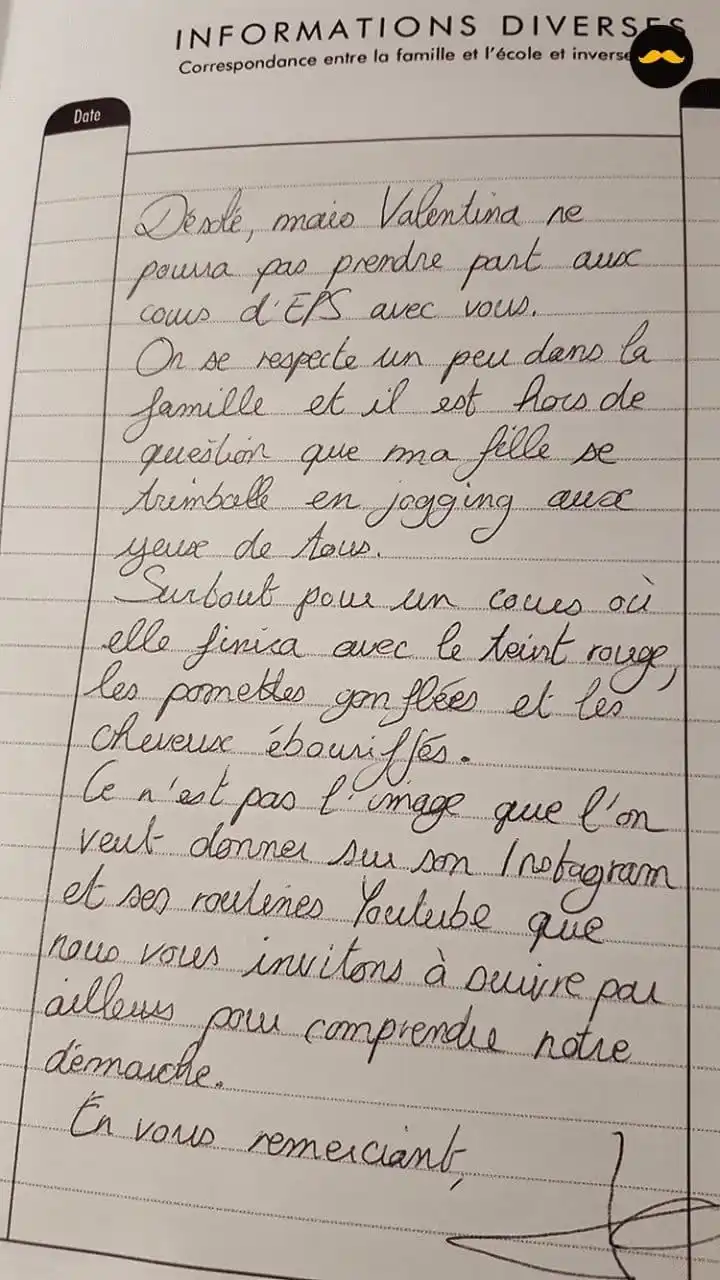 INFORMATIONS DIVERSES
Correspondance entre la famille et l'école et inverse
Date
Désolé, mais Valentina ne
pourra pas prendre part aux
cours d'EPS avec vous.
On se respecte un peu dans la
famille et il est hors de
question que ma fille se
trimballe en jogging aux
yeux de tous.
Surtout pour un cours où
elle finira avec le teint rouge,
les pomettes gonflées et les
cheveux ébouriffés.
Ce n'est pas l'image que l'on
veut donner sur son Instagram
et ses routines Youtube que
nous vous invitons à suivre par
ailleurs pour comprendre notre
démarche.
En vous remerciant,